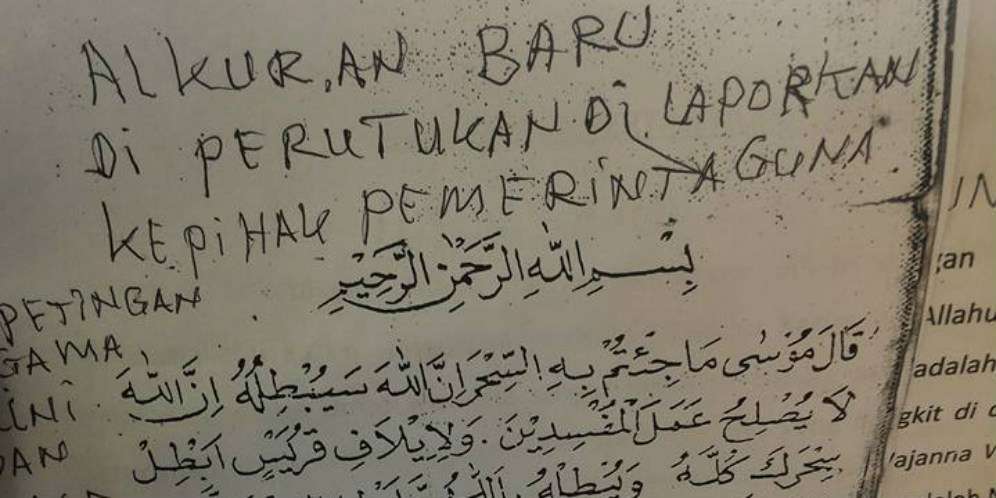 ALKUR,AN BARU
Di PERUTUKAN Di LAPORKAN
KEPiHAK PEMERINTA GUNA
PETINGAN
GAMA
iNi
DAN
بِسْمِ اللّٰهِ الرَّحْمٰنِ الرَّحِيْمِ
قَالَ مُوْسٰى مَا جِئْتُمْ بِهِ السِّحْرُ اِنَّ اللّٰهَ سَيُبْطِلُهُ اِنَّ اللّٰهَ
لَا يُصْلِحُ عَمَلَ الْمُفْسِدِيْنَ . وَلِاِيْلَافِ قُرَيْشٍ اَبْطِلْ
سِحْرَكَ كُلَّهُ وَيُبْطِلُهُ
IN
gan
Allahu
adalah
gkit di
ajanna W